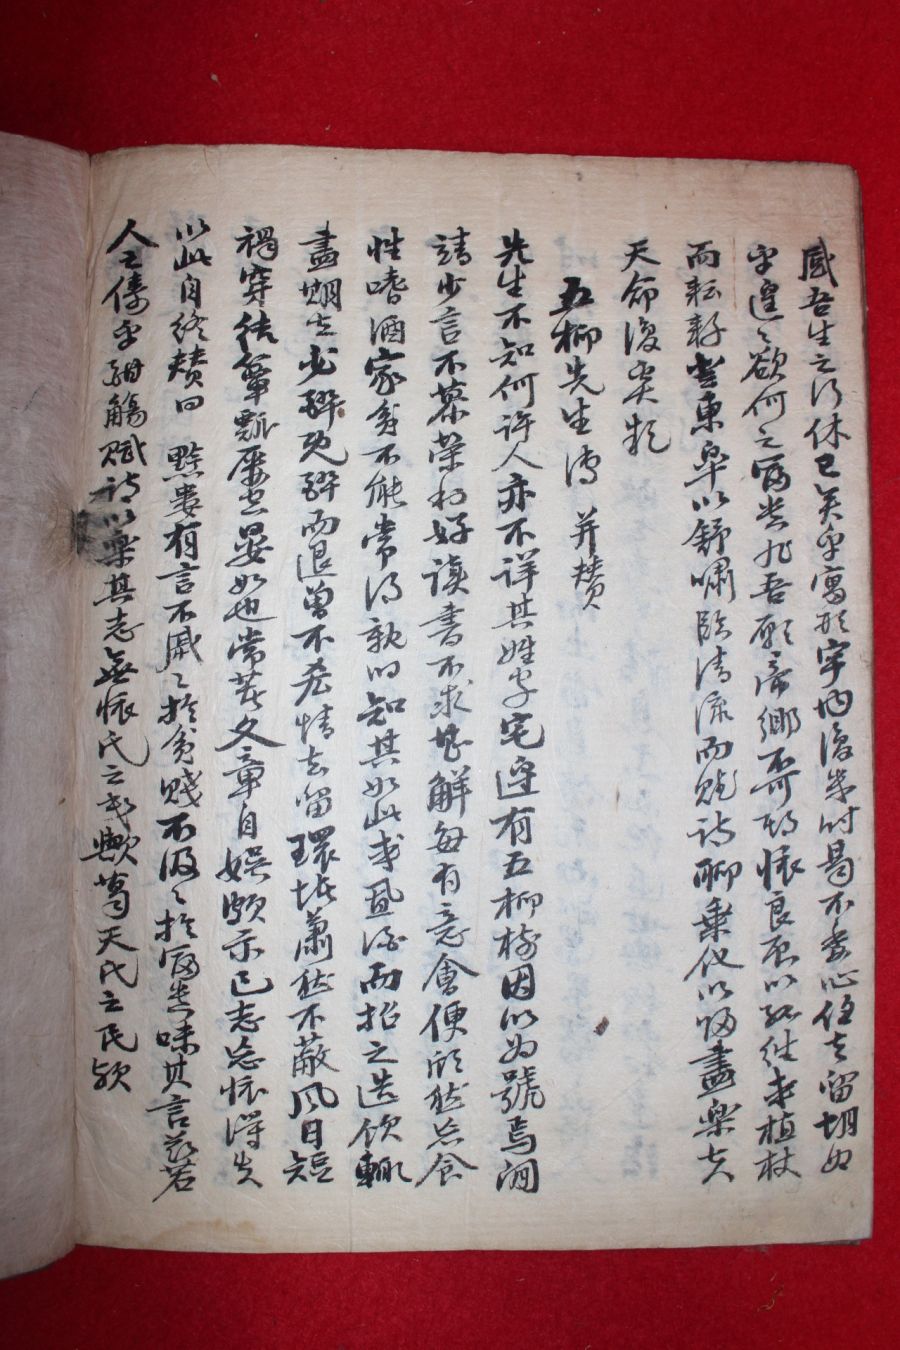 感吾生之行休已矣乎寓形宇內復幾時曷不委心任去留胡為
乎遑〻欲何之富貴非吾願帝鄉不可期懷良辰以孤往或植杖
而耘耔登東皐以舒嘯臨清流而賦詩聊乘化以歸盡樂夫
天命復奚疑
五柳先生傳 并贊
先生不知何許人亦不詳其姓字宅邊有五柳樹因以為號焉閒
靖少言不慕榮利好讀書不求甚解每有意會便欣然忘食
性嗜酒家貧不能常得親旧知其如此或置酒而招之造飲輒
盡期在必醉既醉而退曾不吝情去留環堵蕭然不蔽風日短
褐穿結簞瓢屢空晏如也常著文章自娛頗示己志忘懷得失
以此自終贊曰 黔婁有言不戚〻於貧賤不汲〻於富貴味其言玆若
人之儔乎酣觴賦詩以樂其志無懷氏之民歟葛天氏之民歟